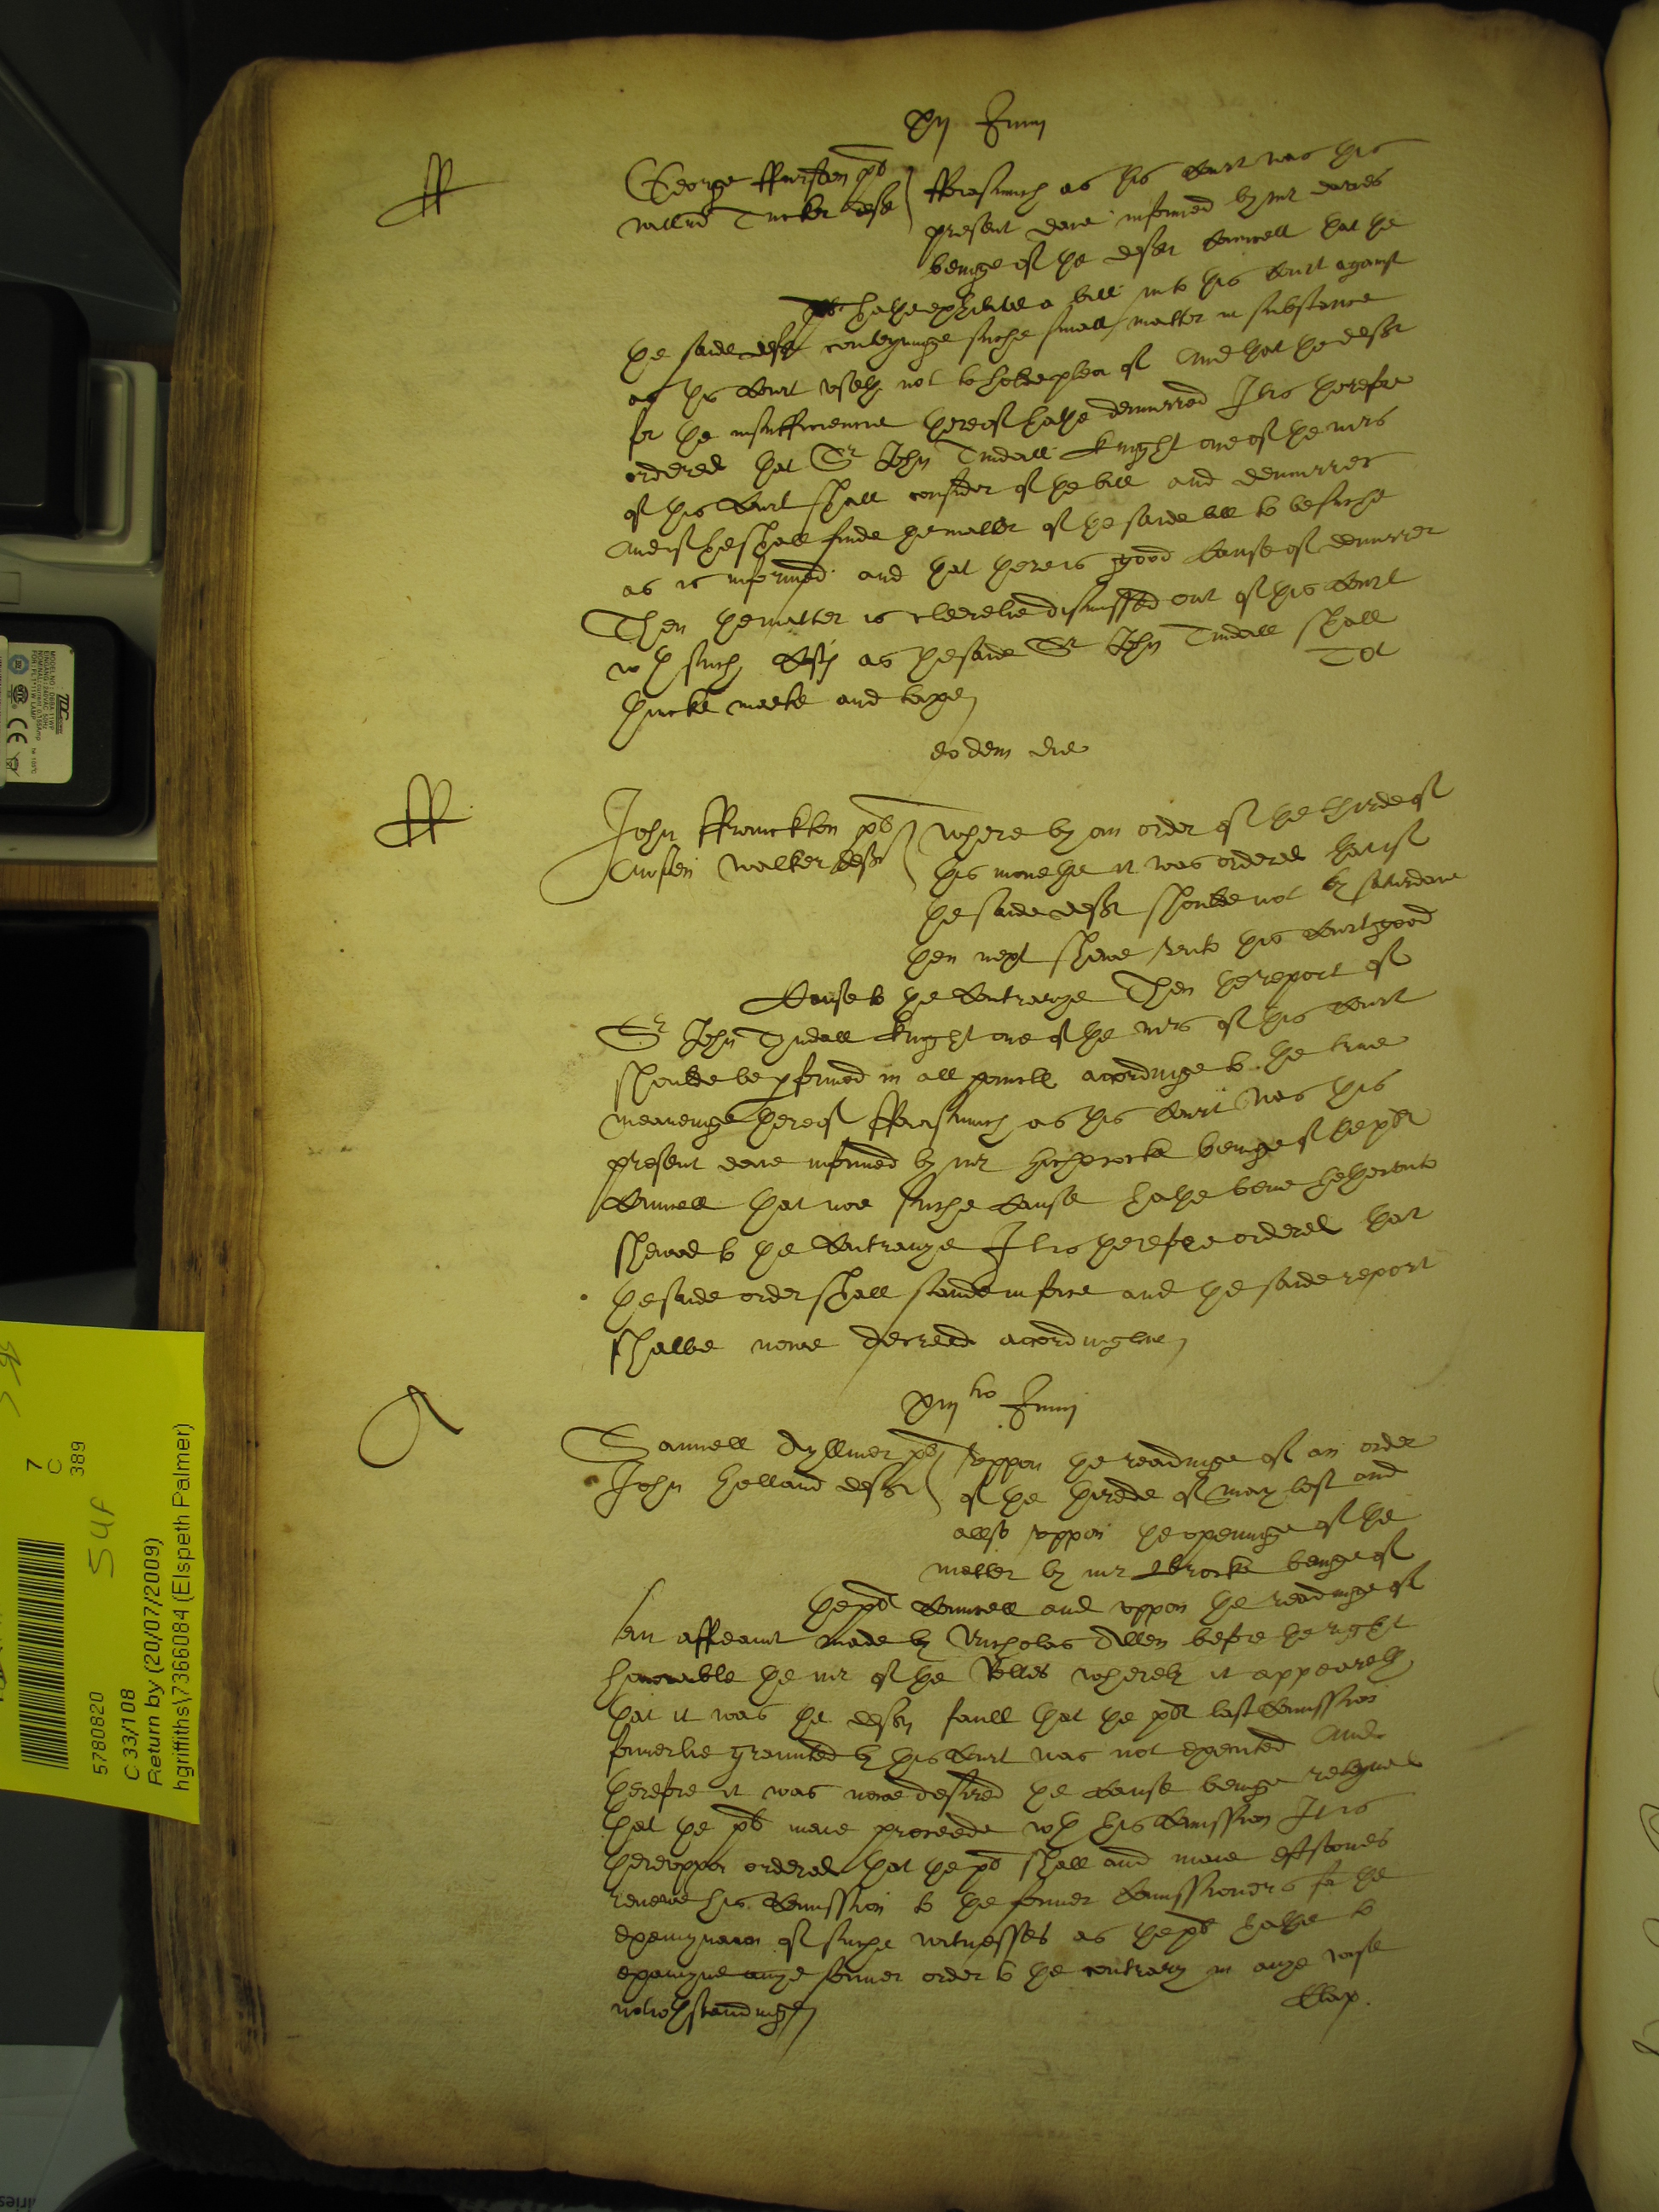 xii Junij
ff
George ffursden pl
Willm Tucker deft
fforasmuch as this Court was this
present daie informed by mr davies
beinge of the deftes Councell that the
pl hathe exhibited a bill into this Court against
the saide deft conteyninge suche small matter in substance
as this Court useth not to holde plea of And that the deft
for the insufficiencie thereof hathe demurred It is therefore
ordered that Sr John Tindall knyght one of the mrs
of this Court shall consider of the bill and demurrer
And if he shall finde the matter of the saide bill to be suche
as is informed and that there is good cause of demurrer
Then the matter is clerelie dismissed out of this Court
wth such Costes as the saide Sr John Tindall shall
thincke meete and taxe
Tot
eodem die
ff
John ffranckton pl
Austen Walker deft
Where by an order of the thirde of
this monethe it was ordered that if
the saide deft shoulde not by saturdaie
then next shewe unto this Court good
Cause to the Contrarye Then the report of
Sr John Tyndall knyght one of the mrs of this Court
shoulde be pformed in all pointes accordinge to the true
meaninge thereof fforasmuch as this Court was this
present daie informed by mr hichcocke beinge of the ples
Councell that noe suche Cause hathe bene hetherunto
shewed to the Contrarye It is therefore ordered that
the saide order shall stande in force and the saide report
shalbe nowe decreed accordinglie
xiiito Junij
A
Samuell Ayllmer pl
John Holland deft
Uppon the readinge of an order
of the thirde of May last and
allso uppon the openinge of the
matter by mr Brocke beinge of
the ples Councell and uppon the readinge of
an affidavit made by Nicholas Allen before the right
honorable the mr of the Rolles whereby it appeareth
that it was the deftes fault that the ples last Comission
formerlie graunted by this Court was not executed And
therefore it was nowe desired the Cause beinge
that the pl maie proceede wth his Comission It is
thereuppon ordered that the pl shall and maie eftsones
renewe his Comission to the former Comissioners for the
examynacon of suche witnesses as the pl hathe to
examyne anye former order to the contrary in anye wise
notwthstandinge
Clap.
7
C
389
SUP
5780820
C 33/108
Return by (20/07/2009)
hgriffiths\7366084 (Elspeth Palmer)